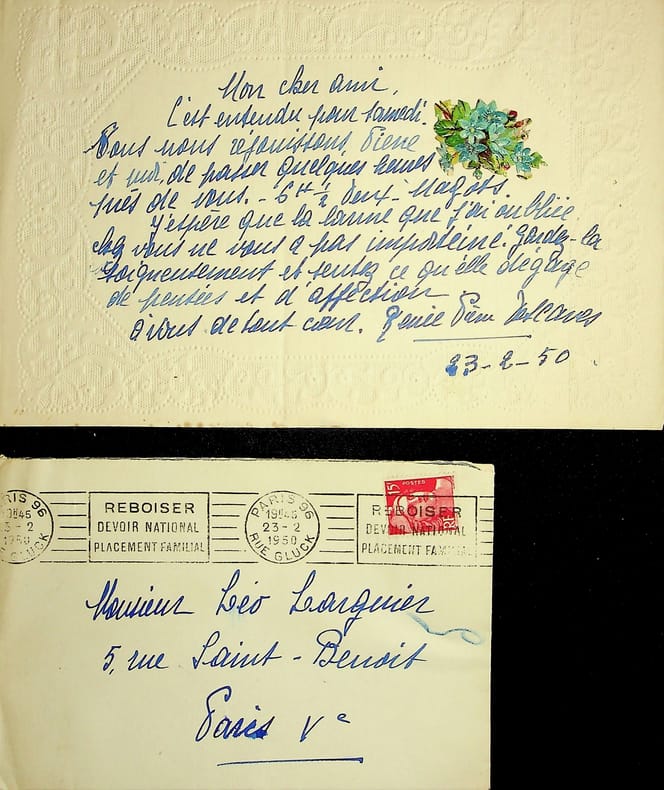 Mon cher ami,
C'est entendu pour samedi.
Nous nous réjouissons, Pierre
et moi, de passer quelques heures
près de vous. - 6 H ½ Deux-Magots.
J'espère que la canne que j'ai oubliée
chez vous ne vous a pas importuné. Gardez-la
soigneusement et sentez ce qu'elle dégage
de pensées et d'affection
à vous de tout cœur. Renée Pierre
23-2-50
RIS 96
REBOISER
DEVOIR NATIONAL
PLACEMENT FAMILIAL
PARIS 96
19H45
23-2
1950
RUE GLUCK
POSTES
15
REBOISER
DEVOIR NATIONAL
PLACEMENT FAMILIAL
Monsieur Léo Larguier
5, rue Saint-Benoit
Paris Ve